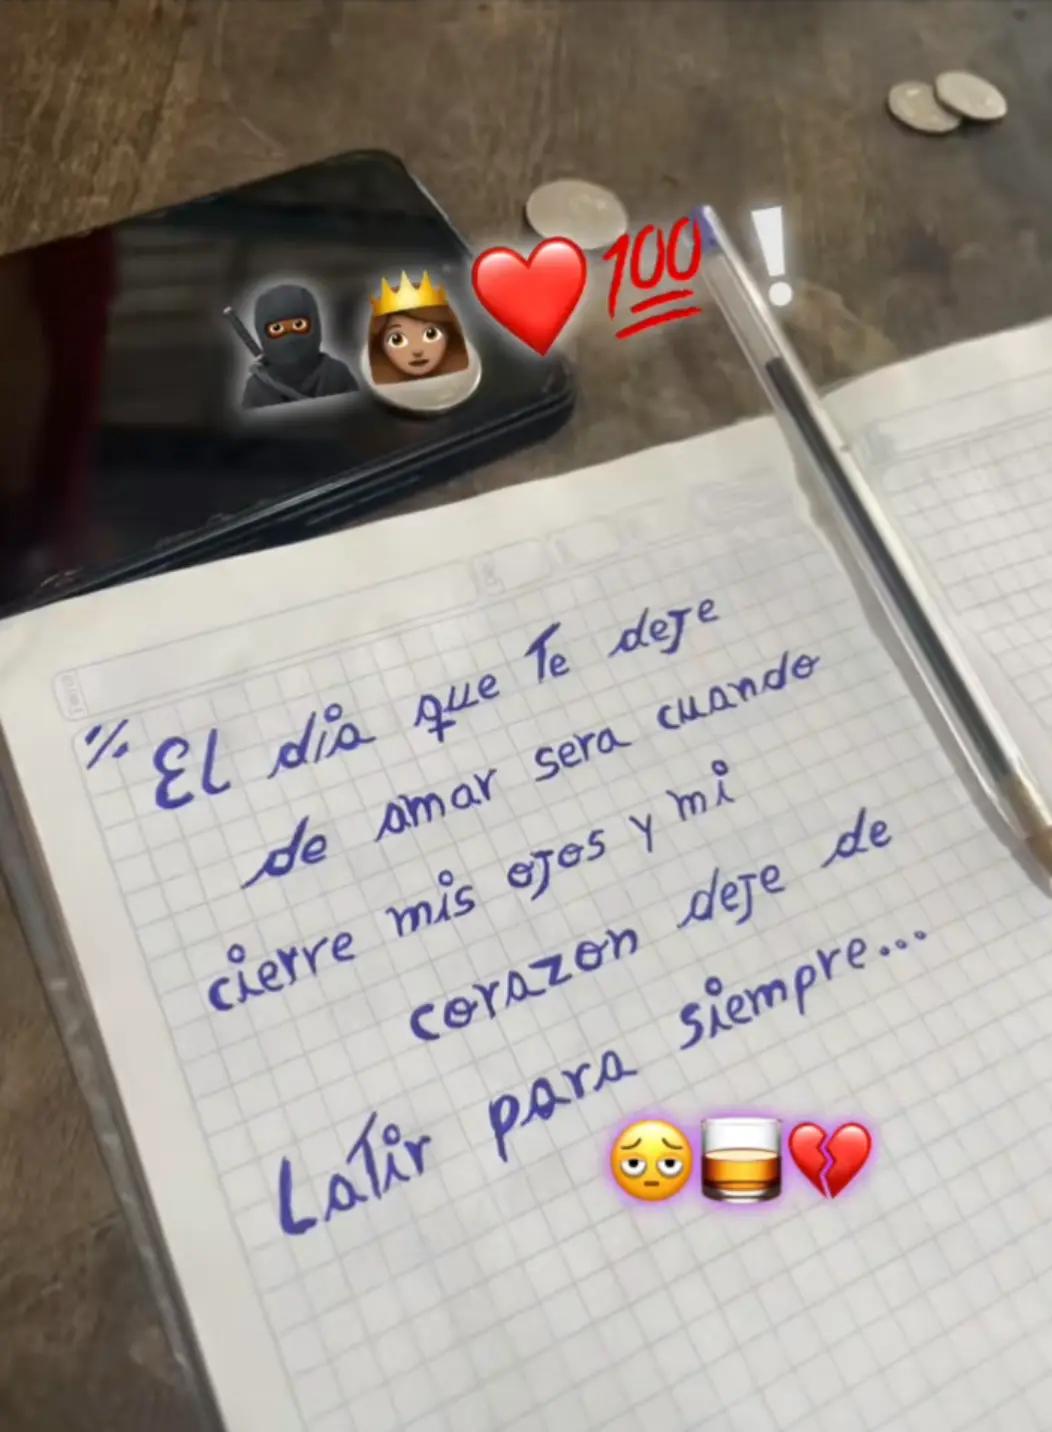 💯!
% El dia que Te deje
de amar sera cuando
cierre mis ojos y mi
corazon deje de
Latir para siempre...